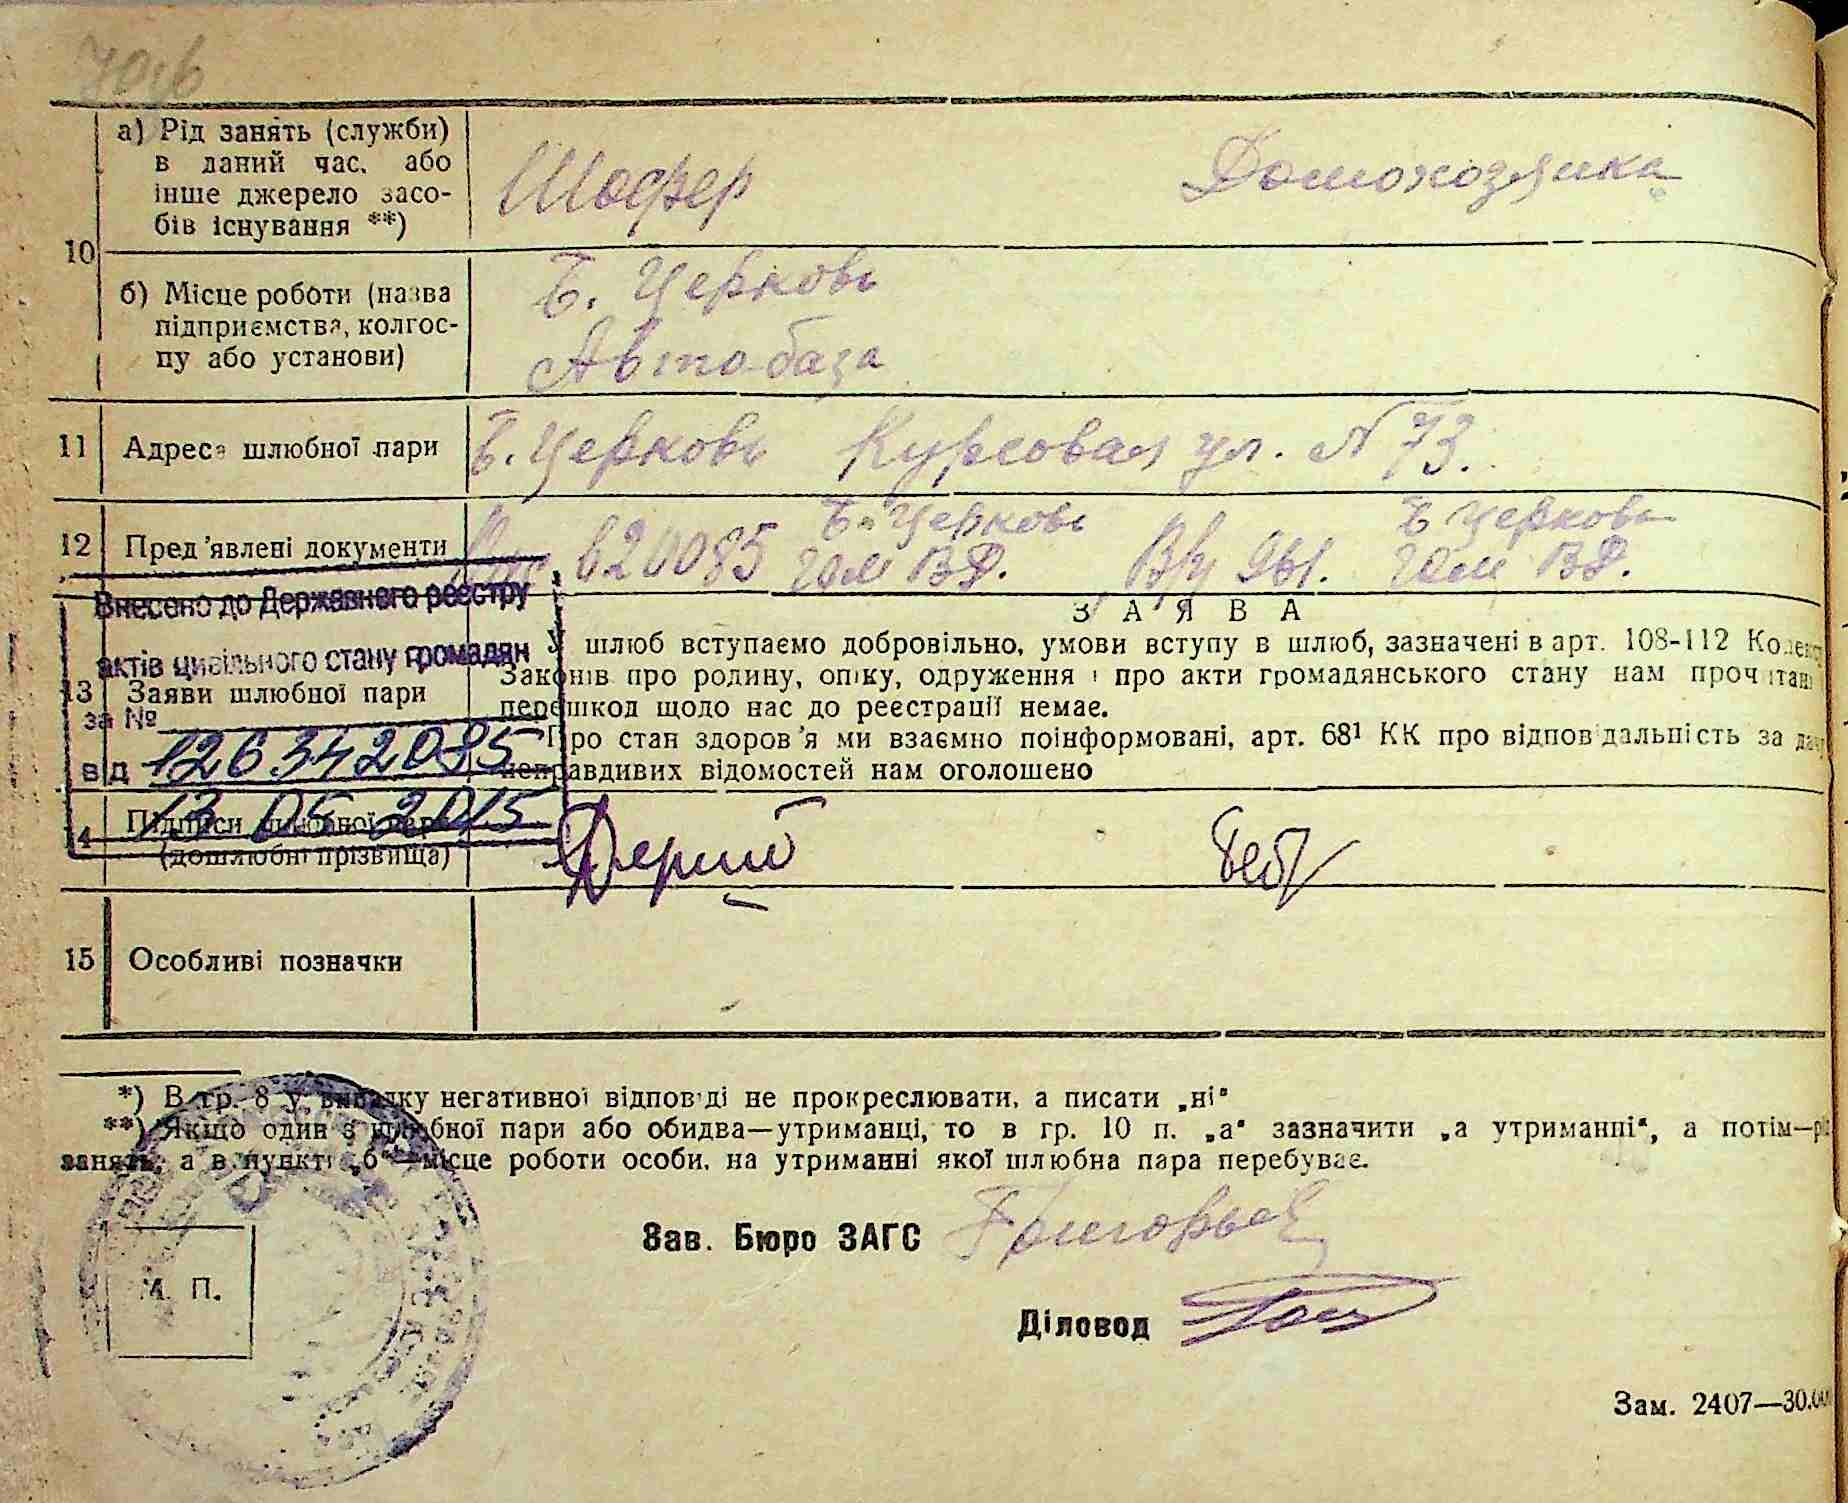 а) Рід занять (служби)
в даний час, або
інше джерело засо-
бів існування **)
Шофер
Домохозяика
10
б) Місце роботи (назва
підприємства, колгос-
пу або установи)
Б. Церковь
Автобаза
11
Адреса шлюбної пари
Б. Церковь Курсовая ул. N 73.
12
Пред'явлені документи
620085
Б. Церковь
ВД.
Б Церковь
ВД.
Внесено до Державного реєстру
актів цивільного стану громадян
за №
126342095
від
13 05 2015
13
Заяви шлюбної пари
ЗАЯВА
У шлюб вступаємо добровільно, умови вступу в шлюб, зазначені в арт. 108-112
Законів про родину, опіку, одруження і про акти громадянського стану нам
перешкод щодо нас до реєстрації немає.
Про стан здоров'я ми взаємно поінформовані, арт. 68¹ КК про відповідальність за
неправдивих відомостей нам оголошено
14
Підписи шлюбної пари
(дошлюбні прізвища)
15
Особливі позначки
*) В гр. 8 у випадку негативної відповіді не прокреслювати, а писати „ні"
**) Якщо один з шлюбної пари або обидва—утриманці, то в гр. 10 п. „а" зазначити „а утриманні", а потім—
занять, а в пункті „б"—місце роботи особи, на утриманні якої шлюбна пара перебуває.
Зав. Бюро ЗАГС
М. П.
Діловод
Зам. 2407—30.